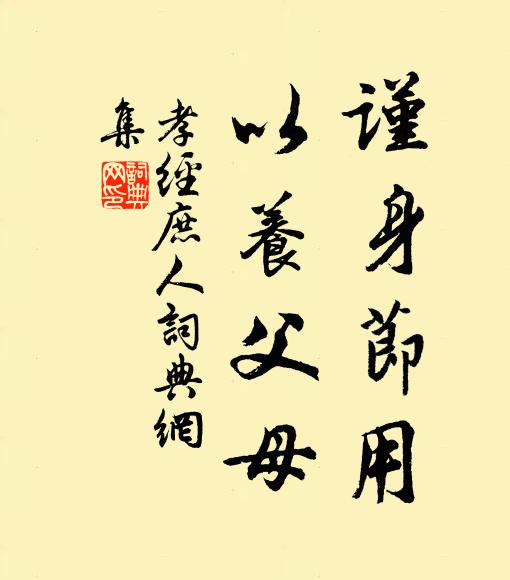 謹身節用
以養父母
孝經庶人詞典網
集
詞典
网印